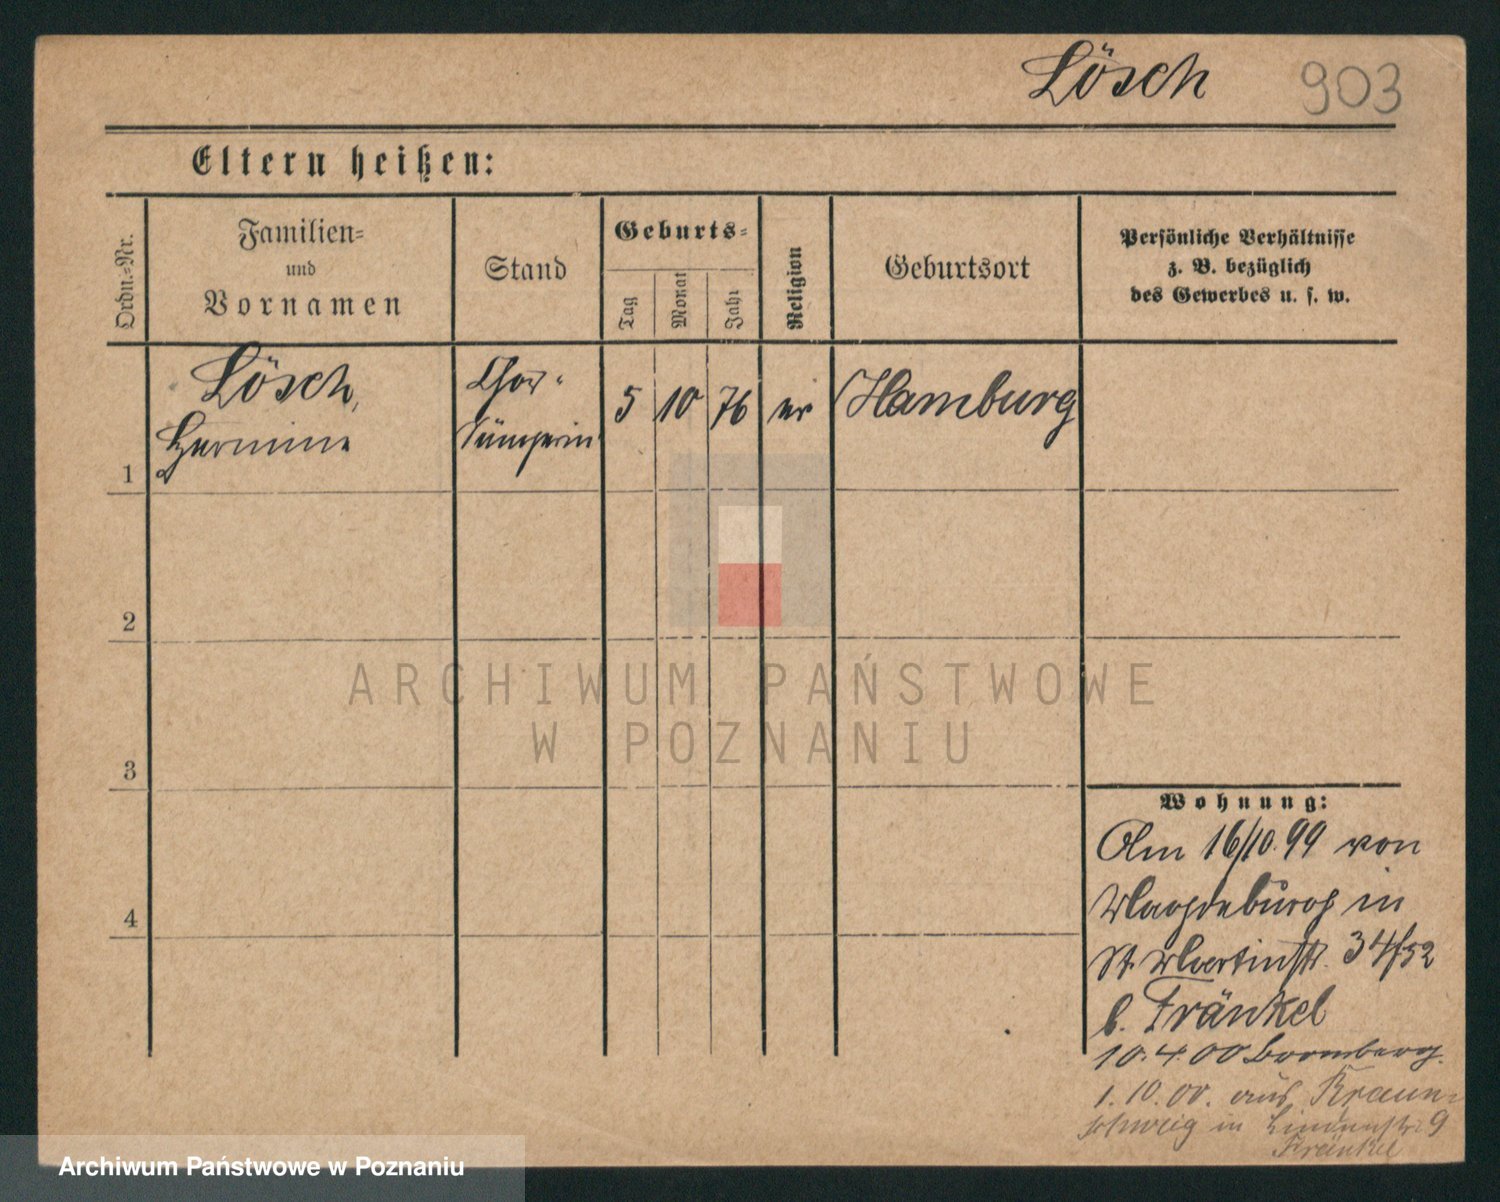 Lösch 903
Eltern heißen:
Ordn.-Nr.
Familien-
und
Vornamen
Stand
Geburts-
Tag
Monat
Jahr
Religion
Geburtsort
Persönliche Verhältnisse
z. B. bezüglich
des Gewerbes u. s. w.
1
Lösch,
Hermine
Chor-
sängerin
5 10 76
ev
Hamburg
2
3
4
Wohnung:
Am 16/10. 99 von
Magdeburg in
St. Martinstr. 34/52
b. Fränkel
10. 4. 00 Bromberg.
1. 10. 00. aus Braun-
schweig in Lindenstr. 9
Fränkel
ARCHIWUM PAŃSTWOWE
W POZNANIU
Archiwum Państwowe w Poznaniu